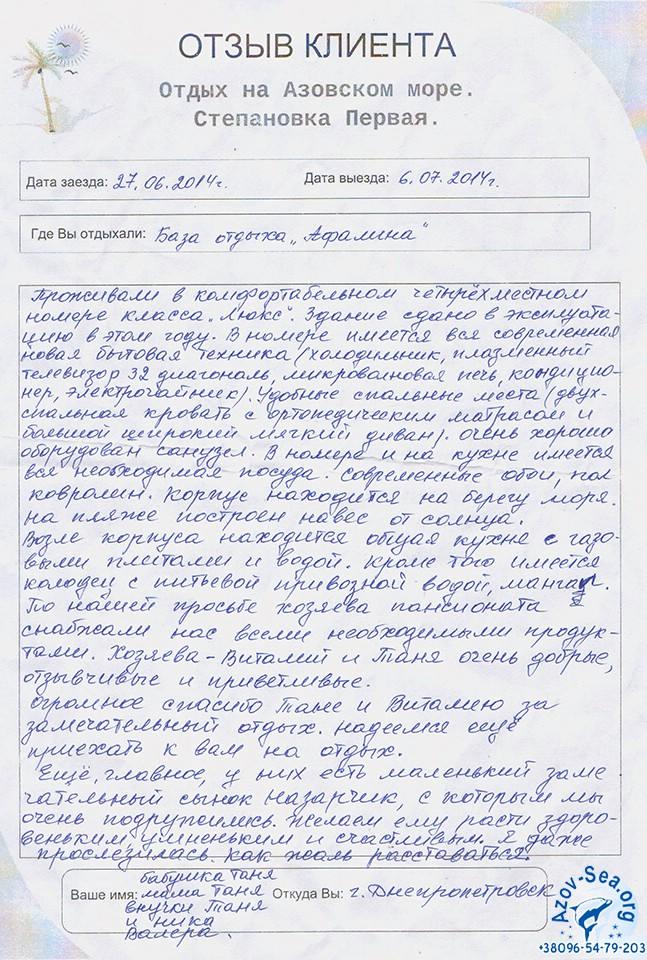 ОТЗЫВ КЛИЕНТА
Отдых на Азовском море.
Степановка Первая.
Дата заезда: 27.06.2014г.
Дата выезда: 6.07.2014г.
Где Вы отдыхали: База отдыха „Афалина“
Проживали в комфортабельном четырёхместном
номере класса „Люкс“. Здание сдано в эксплуата-
цию в этом году. В номере имеется вся современная
новая бытовая техника (холодильник, плазменный
телевизор 32 диагональ, микровалновая печь, кондицио-
нер, электрочайник). Удобные спальные места (двух-
спальная кровать с ортопедическим матрасом и
большой широкий мягкий диван). Очень хорошо
оборудован санузел. В номере и на кухне имеется
вся необходимая посуда. Современные обои, пол
ковролин. Корпус находится на берегу моря.
На пляже построен навес от солнца.
Возле корпуса находится общая кухне с газо-
выми плитами и водой. Кроме того имеется
колодец с питьевой привозной водой, мангал.
По нашей просьбе хозяева пансионата
снабжали нас всеми необходимыми продук-
тами. Хозяева - Виталий и Таня очень добрые,
отзывчивые и приветливые.
Огромное спасибо Тане и Виталию за
замечательный отдых. Надеемся ещё
приехать к вам на отдых.
Ещё, главное, у них есть маленький заме
чательный сынок Назарчик, с которым мы
очень подружились. Желаем ему расти здоро-
веньким умненьким и счастливым. Я даже
прослезилась. Как жаль расставаться.
Ваше имя: бабушка Таня
мама Таня
внучки Таня
и Ника
Валера.
Откуда Вы: г. Днепропетровск
Azov-Sea.org
+38096-54-79-203